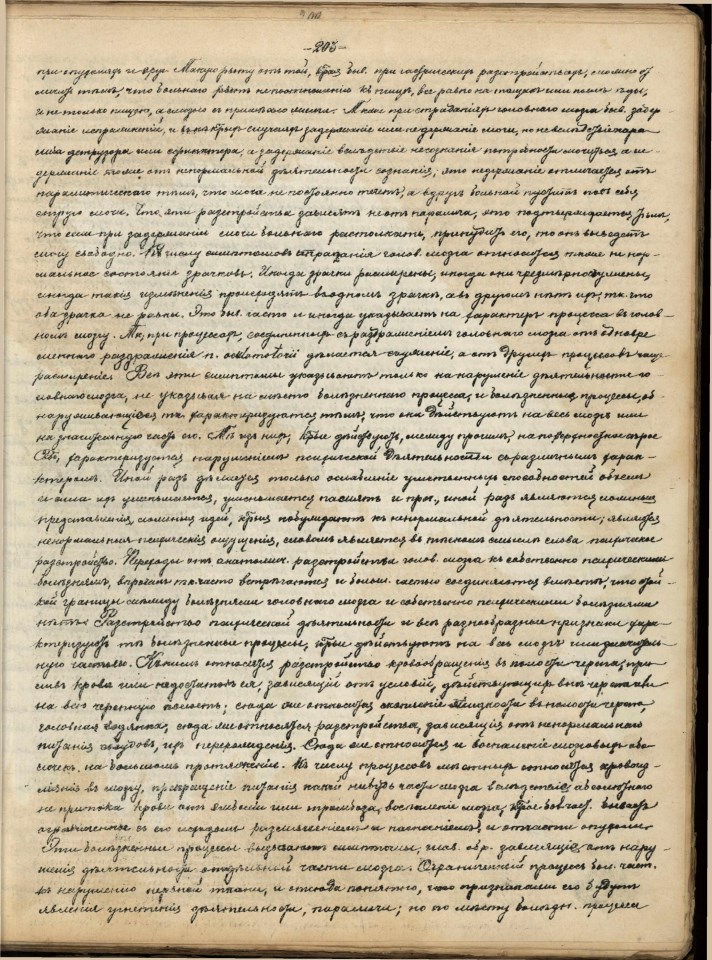 -203-
при опухоляхъ и друг. Такую рвоту отъ той, кѣрая быв. при гастрическихъ разстройствахъ, можно от
личить тѣмъ, что больного рветъ не по отношенію къ пищѣ, все равно на тощакъ или послѣ ѣды,
и не только пищею, а слизью съ примѣсью желчи. Также при страданіяхъ головного мозга быв. задер
жаніе испражненій, и въ нѣкрыхъ случаяхъ задержаніе или недержаніе мочи, но не вслѣдствіе пара
лича детрузора или сфинктера, а задержаніе вслѣдствіе несознанія потребности мочиться, а не-
держаніе тоже отъ ненормальной дѣятельности сознанія, это недержаніе отличается отъ
паралитическаго тѣмъ, что моча не постоянно течетъ, а вдругъ больной пуститъ подъ себя
струю мочи. Что эти разстройства зависятъ не отъ паралича, это подтверждается тѣмъ,
что если при задержаніи мочи больного растолкать, принудить его, то онъ выведетъ
мочу свободно. Къ числу симптомовъ страданія голов. мозга относится также не нор-
мальное состояніе зрачковъ. Иногда зрачки расширены, иногда они чрезмѣрно съужены,
иногда такія измѣненія происходятъ въ одномъ зрачкѣ, а въ другомъ нѣтъ ихъ, тк. что
оба зрачка не равны. Это быв. часто и иногда указываетъ на характеръ процесса въ голов-
номъ мозгу. Тк, при процессахъ, соединенныхъ съ раздраженіемъ головного мозга отъ одновре
меннаго раздраженія n. oculomotorii дѣлается съуженіе, а отъ другихъ процессовъ чаще
расширеніе. Всѣ эти симптомы указываютъ только на нарушеніе дѣятельности го-
ловного мозга, не указывая на мѣсто болѣзненнаго процесса, и болѣзненные процессы, об-
наруживающіеся тк. характеризуются тѣмъ, что они дѣйствуютъ на весь мозгъ или
на значительную часть его. Тѣ изъ нихъ, кѣрые дѣйствуютъ, между прочимъ, на поверхностное сѣрое
в., характеризуется нарушеніемъ психической дѣятельности съ различнымъ харак-
теромъ. Иной разъ дѣлается только ослабленіе умственныхъ способностей, объемъ
и сила ихъ уменьшается, уменьшается память и проч., иной разъ являются ложныя
представленія, ложныя идеи, кѣрыя побуждаютъ къ ненормальной дѣятельности; являются
ненормальныя психическія ощущенія, словомъ является въ тѣсномъ смыслѣ слова психическое
разстройство. Переходы отъ анатомич. разстройствъ голов. мозга къ собственно психическимъ
болѣзнямъ, впрочемъ тк. часто встрѣчаются и больш. частью соединяются вмѣстѣ, что рѣз-
кой границы между болѣзнями головного мозга и собственно психическими болѣзнями
нѣтъ. Разстройство психической дѣятельности и всѣ разнообразные признаки хара-
ктеризуютъ тѣ болѣзненные процессы, кѣрые дѣйствуютъ на весь мозгъ или значитель-
ную часть его. Къ нимъ относятся разстройство кровообращенія въ полости черепа, при-
ливъ крови или недостатокъ ея, зависящій отъ условій, дѣйствующихъ внѣ черепа или
на всю черепную полость; сюда же относится скопленіе жидкости въ полости черепа,
головная водянка, сюда же относятся разстройства, зависящія отъ ненормальнаго
питанія сосудовъ, ихъ перерожденія. Сюда же относится и воспаленіе мозговыхъ обо
лочекъ на большомъ протяженіи. Къ числу процессовъ мѣстныхъ относятся кровоиз-
ліяніе въ мозгу, прекращеніе питанія какой нибудь части мозга вслѣдствіе абсолютнаго
не притока крови отъ эмболіи или тромбоза, воспаленіе мозга, кѣрое большею ч. бываетъ
ограниченное съ его исходомъ размягченіемъ и нагноеніемъ, и отчасти опухоли.
Эти болѣзненные процессы вызываютъ симптомы, глав. обр. зависящіе отъ нару-
шенія дѣятельности отдѣльной части мозга. Ограниченный процессъ бол. част.
къ нарушенію нервной ткани, и отсюда понятно, что признаками его будутъ
явленія угнетенія дѣятельности, параличи; но по мѣсту болѣзн. процесса